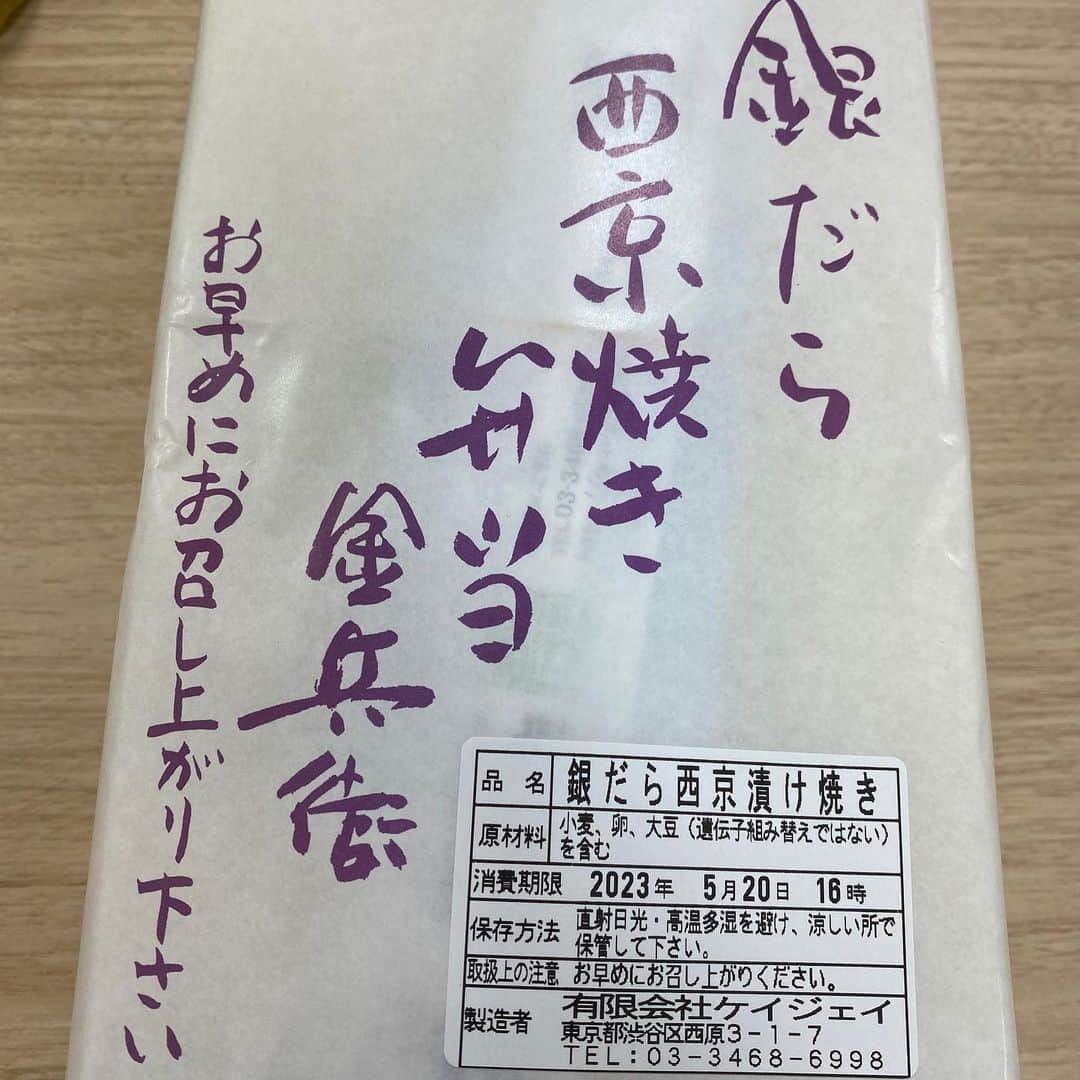 銀だら
西京焼き
弁当
金兵衛
お早めにお召し上がり下さい
品名 銀だら西京漬け焼き
原材料 小麦、卵、大豆（遺伝子組み替えではない）
を含む
消費期限 2023年 5月20日 16時
保存方法 直射日光・高温多湿を避け、涼しい所で
保管して下さい。
取扱上の注意 お早めにお召し上がりください。
製造者 有限会社ケイジェイ
東京都渋谷区西原3-1-7
TEL:03-3468-6998